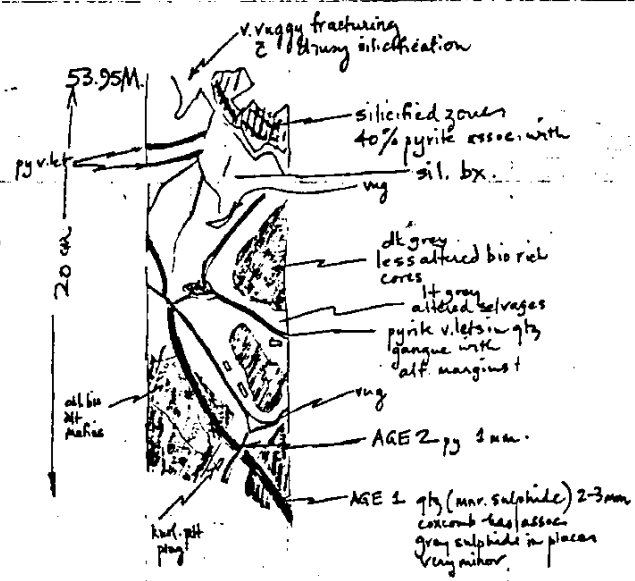 v. vuggy fracturing
c̄ drusy silicification
53.95M.
silicified zones
40% pyrite assoc. with
py v.let
sil. bx.
vug
20 cm
dk grey
less altered bio rich
cores
lt grey
altered selvages
pyrite v.lets in qtz
gangue with
alt. margins
vug
alt bio
alt
mafics
AGE 2 py 1mm.
AGE 1 qtz (mnr. sulphide) 2-3mm
coxcomb has assoc
grey sulphide in places
very minor.
plag